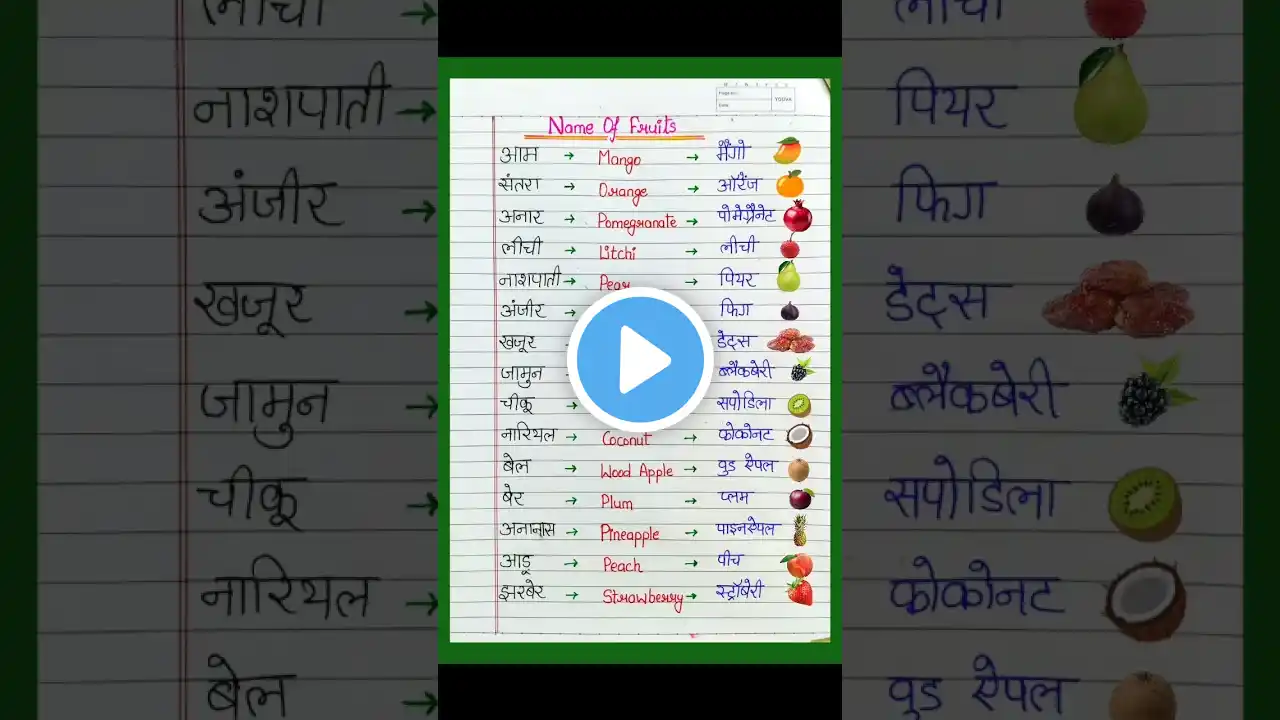 लीची
नाशपाती →
अंजीर →
खजूर →
जामुन →
चीकू →
नारियल →
बेल
Page No.:
Date:
YOUVA
Name Of Fruits
आम → Mango → मैंगो
संतरा → Orange → ऑरेंज
अनार → Pomegranate → पोमेग्रैनेट
लीची → Litchi → लीची
नाशपाती → Pear → पियर
अंजीर → फिग
खजूर डेट्स
जामुन ब्लैकबेरी
चीकू → सपोडिला
नारियल → Coconut → कोकोनट
बेल → Wood Apple → वुड ऐपल
बेर → Plum → प्लम
अनानास → Pineapple → पाइनऐपल
आड़ू → Peach → पीच
झरबेर → Strawberry → स्ट्रॉबेरी
लीची
पियर
फिग
डेट्स
ब्लैकबेरी
सपोडिला
कोकोनट
वुड ऐपल